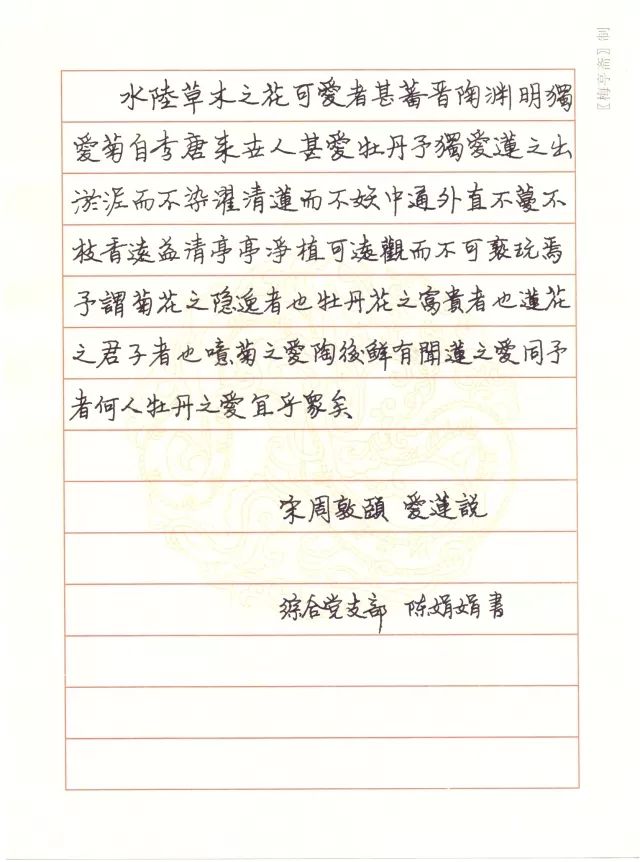 【梅亭斋】制
水陸草木之花可愛者甚蕃晋陶渊明獨
愛菊自李唐来世人甚愛牡丹予獨愛蓮之出
淤泥而不染濯清蓮而不妖中通外直不蔓不
枝香遠益清亭亭淨植可遠觀而不可褻玩焉
予謂菊花之隐逸者也牡丹花之富貴者也蓮花
之君子者也噫菊之愛陶後鲜有聞蓮之愛同予
者何人牡丹之愛宜乎眾矣
宋周敦頤 愛蓮説
综合党支部 陈娟娟書